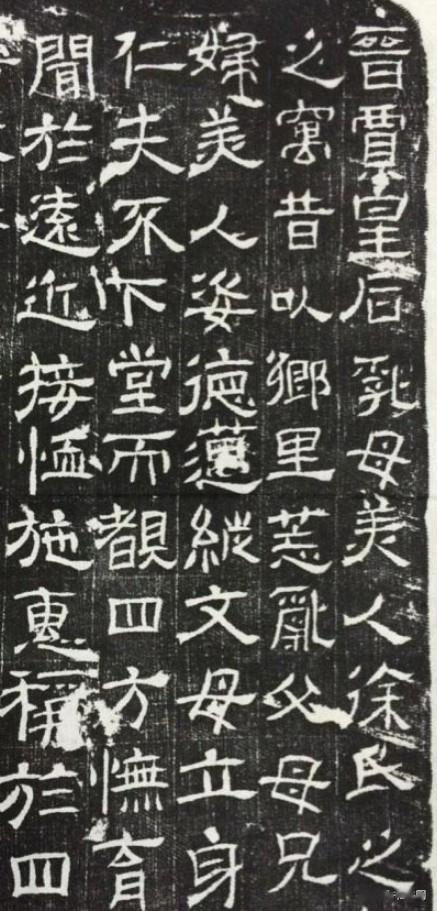 晉賈皇后乳母美人徐氏之
之寓昔以鄉里荒亂父母兄
婦美人姿德邁縱文母立身
仁夫不下堂而覩四方憮育
聞於遠近接恤施惠稱於四